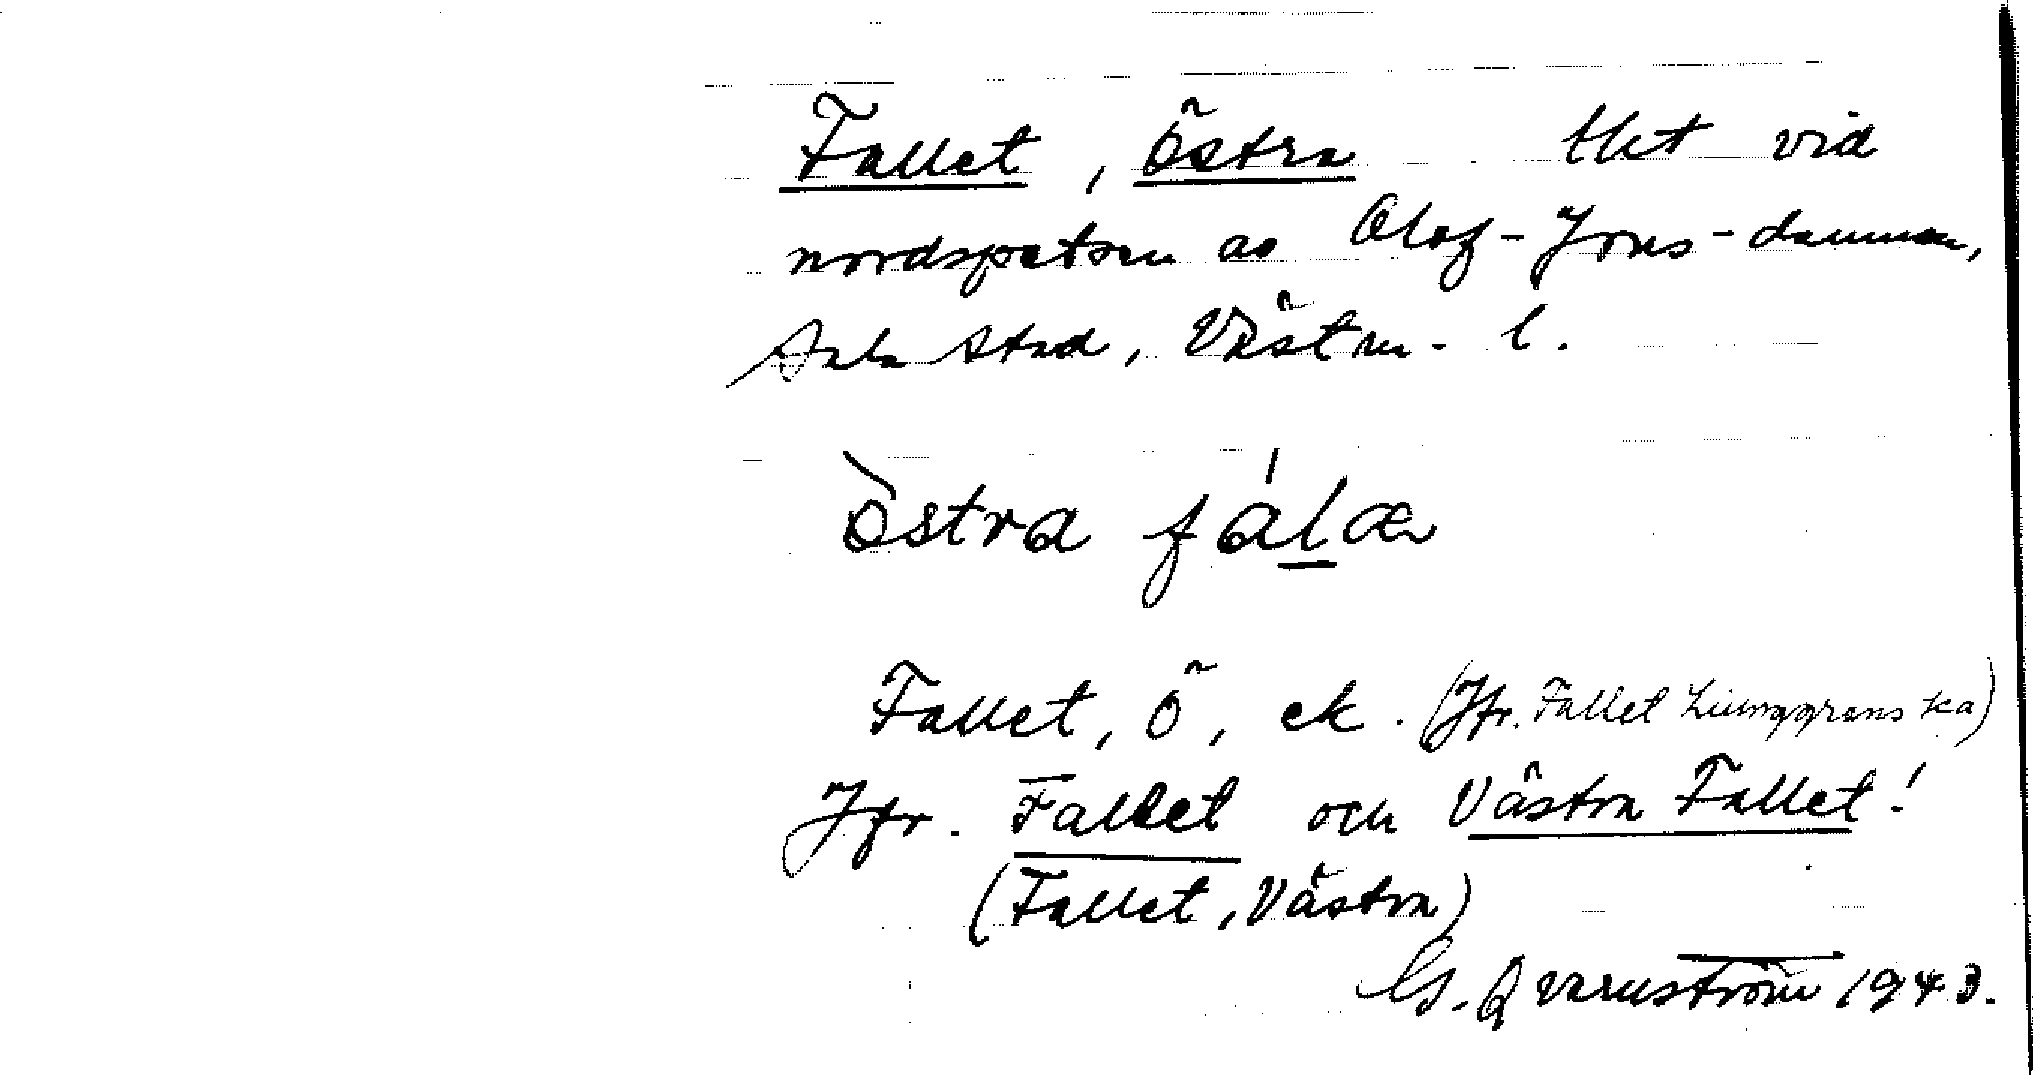 Fallet, Östra tlht vid
nordspetsen av Olof-Jons-dammen,
Sala stad, Västm. l.
östra fálæ
Fallet, Ö, ek. (Jfr. Fallet Liunggrenska)
Jfr. Fallet och Västra Fallet!
(Fallet, Västra)
G. Qvarnström 1943.